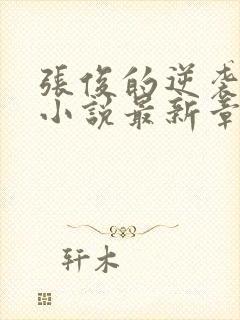 張俊的逆袭
小説最新章
轩木